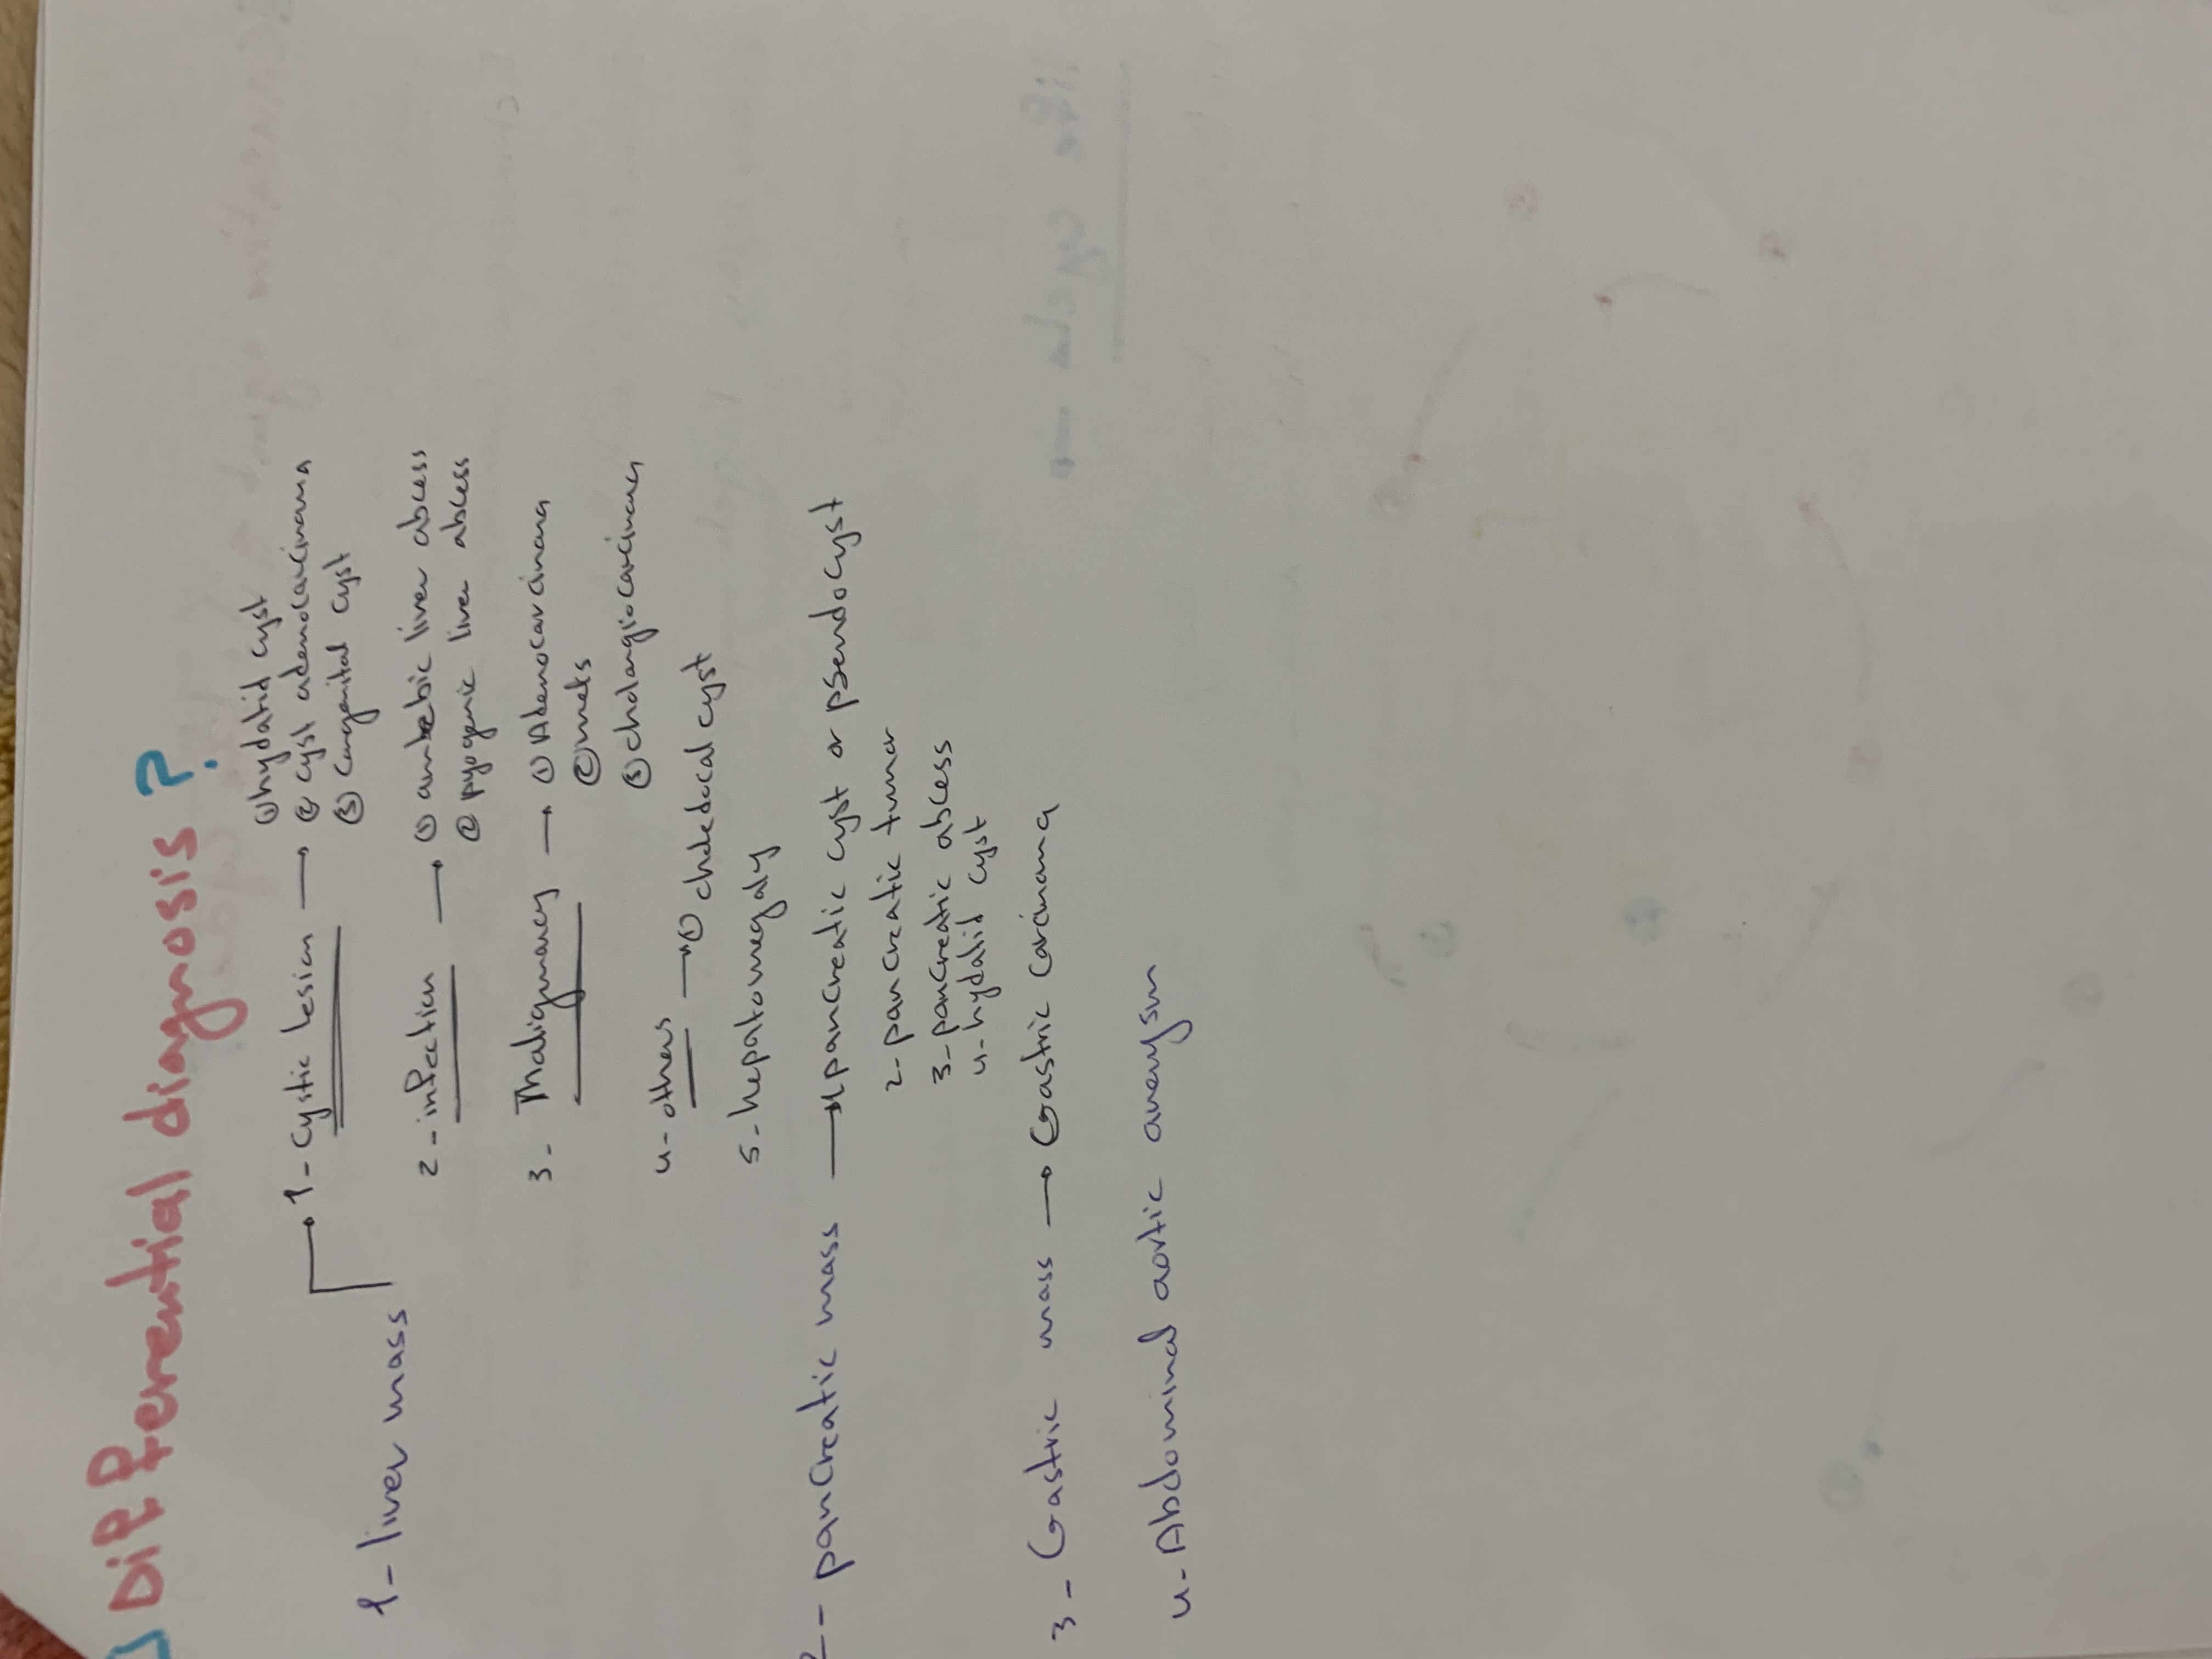 Differential diagnosis ?
1- liver mass
1- cystic lesion → ① hydatid cyst
② cyst adenocarcinoma
③ congenital cyst
2- infection → ① amebic liver abcess
② pyogenic liver abcess
3- Malignancy → ① Adenocarcinoma
② mets
③ cholangiocarcinoma
4- others → ① choledocal cyst
5- hepatomegaly
2- pancreatic mass → 1 pancreatic cyst or pseudocyst
2- pancreatic tumor
3- pancreatic abcess
4- hydatid cyst
3- Gastric mass → Gastric carcinoma
4- Abdominal aortic aneurysm